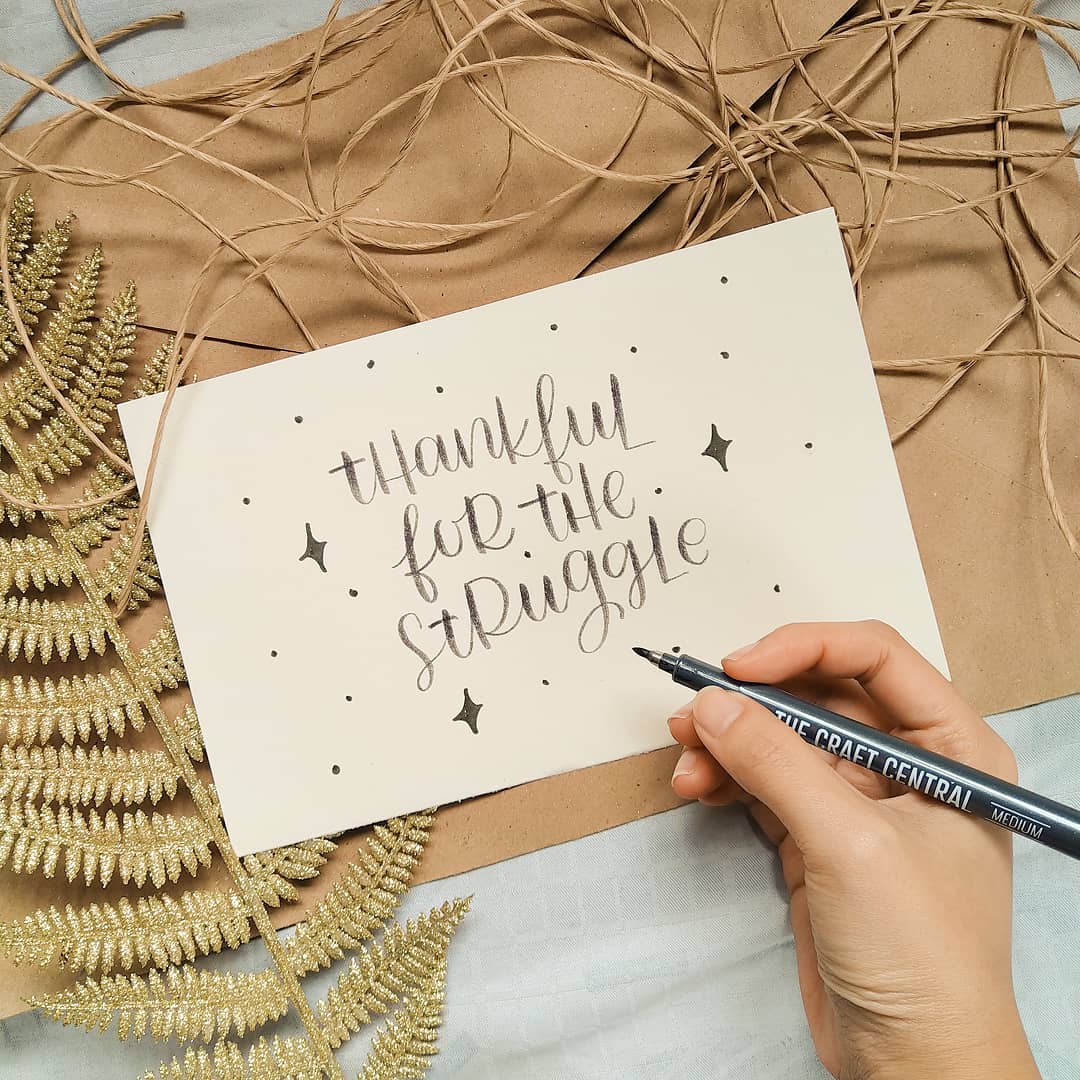 tHankful
foR tHe
stRuggLe
THE CRAFT CENTRAL
MEDIUM